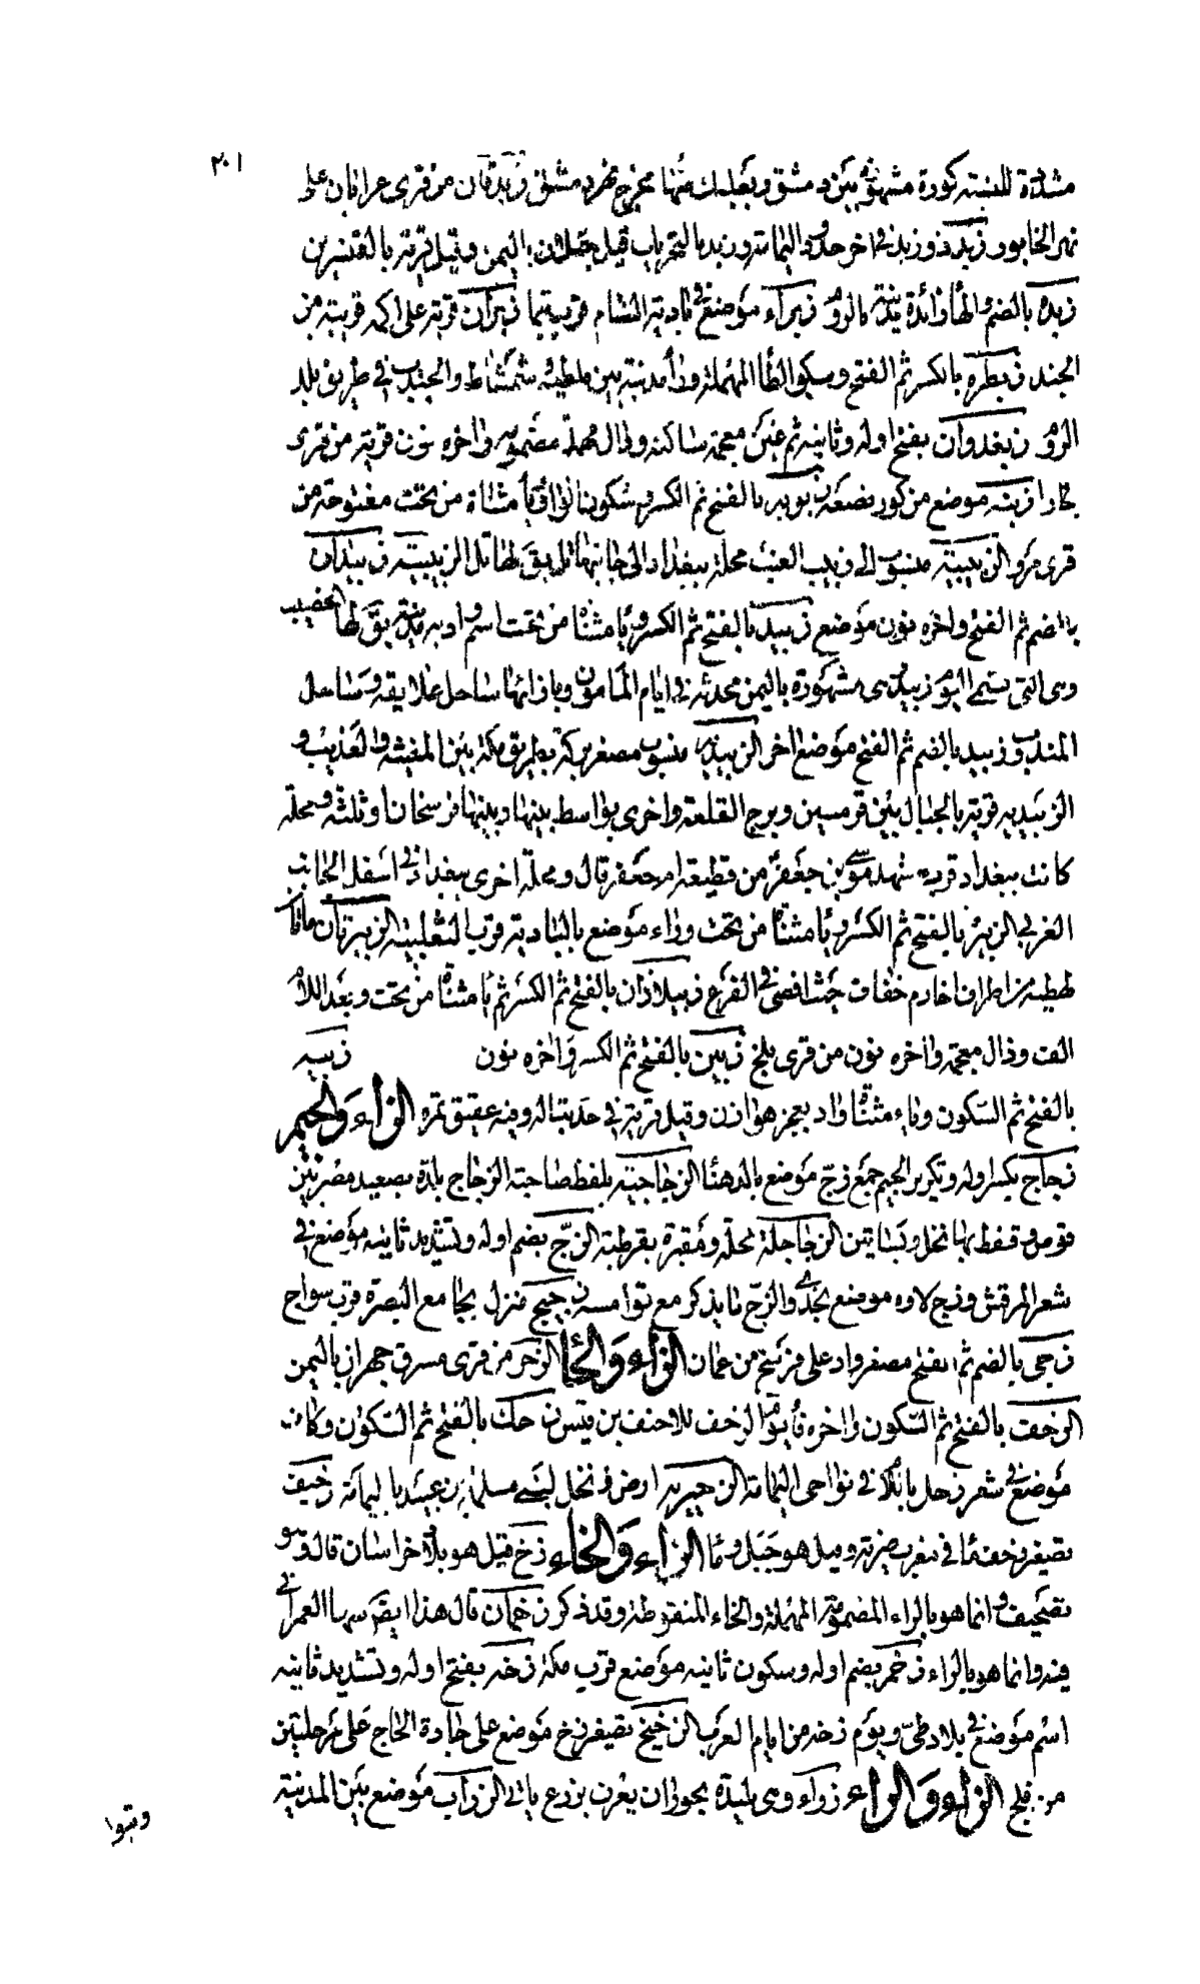 ٢٠١
مشددة للنسبة كورة مشهورة بين دمشق وبعلبك منها مخرج نهر دمشق وزبدقان من قرى عرابان على
نهر الخابور زبد وزبد في اخر حدود اليمامة وزبد بالتحريك قيل جبلان باليمن وقيل قرية بالقنسرين
زبدة بالضم والهاء زائدة مدينة بالروم زبراء موضع في بادية الشام قرب تيما زبران قرية على اكمة قريبة من
الجند زبطرة بالكسر ثم الفتح وسكون الطا المهملة وراء مدينة بين ملطية وشمشاط والحدث في طريق بلد
الروم زبغدوان بفتح اوله وثانيه ثم غين معجمة ساكنة ودال مهملة مضمومة واخره نون قرية من قرى
بخارا زبنة موضع من كور بالفتح ثم الكسر وسكون الواو ويا مثناة من تحت مفتوحة من
قرى مرو الزبيبية منسوب الى زبيب العنب محلة ببغداد الى جانبها تل يقال لها تل الزبيبية زبيدان
بالضم ثم الفتح واخره نون موضع زبيد بالفتح ثم الكسر ويا مثناة من تحت اسم واد به مدينة يقال لها الحصيب
وهي التي تسمى اليوم زبيد وهي مشهورة باليمن محدثة في ايام المامون وبازائها ساحل غلافقة وساحل
المندب وزبيد بالضم ثم الفتح موضع اخر الزبيدية منسوب مصغر بركة بطريق مكة بين المغيثة والعذيب و
الزبيدية قرية بالجبال بين قرمسين وبرج القلعة واخرى بواسط بينها وبينها فرسخان او ثلثة ومحلة
كانت ببغداد قرب مشهد موسى بن جعفر من قطيعة ام جعفر قال ومحلة اخرى ببغداد في اسفل الجانب
الغربي الزبير بالفتح ثم الكسر ويا مثناة من تحت وراء موضع بالبادية قرب الثعلبية الزبيرتان ماءتان
لطهية من اطراف اخارم خفاف حيث افضى في الفرع زبيلاذان بالفتح ثم الكسر ثم يا مثناة من تحت وبعد اللام
الف وذال معجمة واخره نون من قرى بلخ زبين بالفتح ثم الكسر واخره نون زبيه
بالفتح ثم السكون وياء مثناة واد بعجز هوازن وقيل قرية في حديثا له ومنه عقيق تمره الزاء والجيم
زجاج بكسر اوله وتكرير الجيم جمع زج موضع بالدهنا الزجاجية بلفظ صاحبة الزجاج بلدة بصعيد مصر بين
قوص وقفط بها نخل وبساتين الزجاجلة محلة ومقبرة بقرطبة الزج بضم اوله وتشديد ثانيه موضع في
شعر المرقش وزج لاوه موضع بنجد والزج ما يذكر مع تواصه زجيج منزل بجامع البصرة قرب سواج
زجي بالضم ثم الفتح مصغر واد على فرسخ من عمان الزاء والحا الزحر من قرى مشرق جهران باليمن
الزحف بالفتح ثم السكون واخره فا يوم الزحف للاحنف بن قيس زحك بالفتح ثم السكون وكاف
موضع في شعر زحل باب في نواحي اليمامة الزحيرية ارض ونخل لبني مسلمة بن عبيد باليمامة زحيف
تصغير زحف ما في مغرب ضرية وقيل هو جبل وما الزاء والخاء زخ قيل هو بلد خراسان قال وهو
تصحيف وانما هو بالراء المضمومة المهملة والخاء المنقوطة وقد ذكر زخمان قال هذا ايضا العمراني
فيه وانما هو بالراء زخمر بضم اوله وسكون ثانيه موضع قرب مكة زخه بفتح اوله وتشديد ثانيه
اسم موضع في بلاد طي ويوم زخه من ايام العرب الزخيخ تصغير زخ موضع على جادة الحاج على مرحلتين
من فلج الزاء والراء زراء وهي بليدة بحوران يعرف بزرع ياتي الزراب موضع بين المدينة
وتبوا